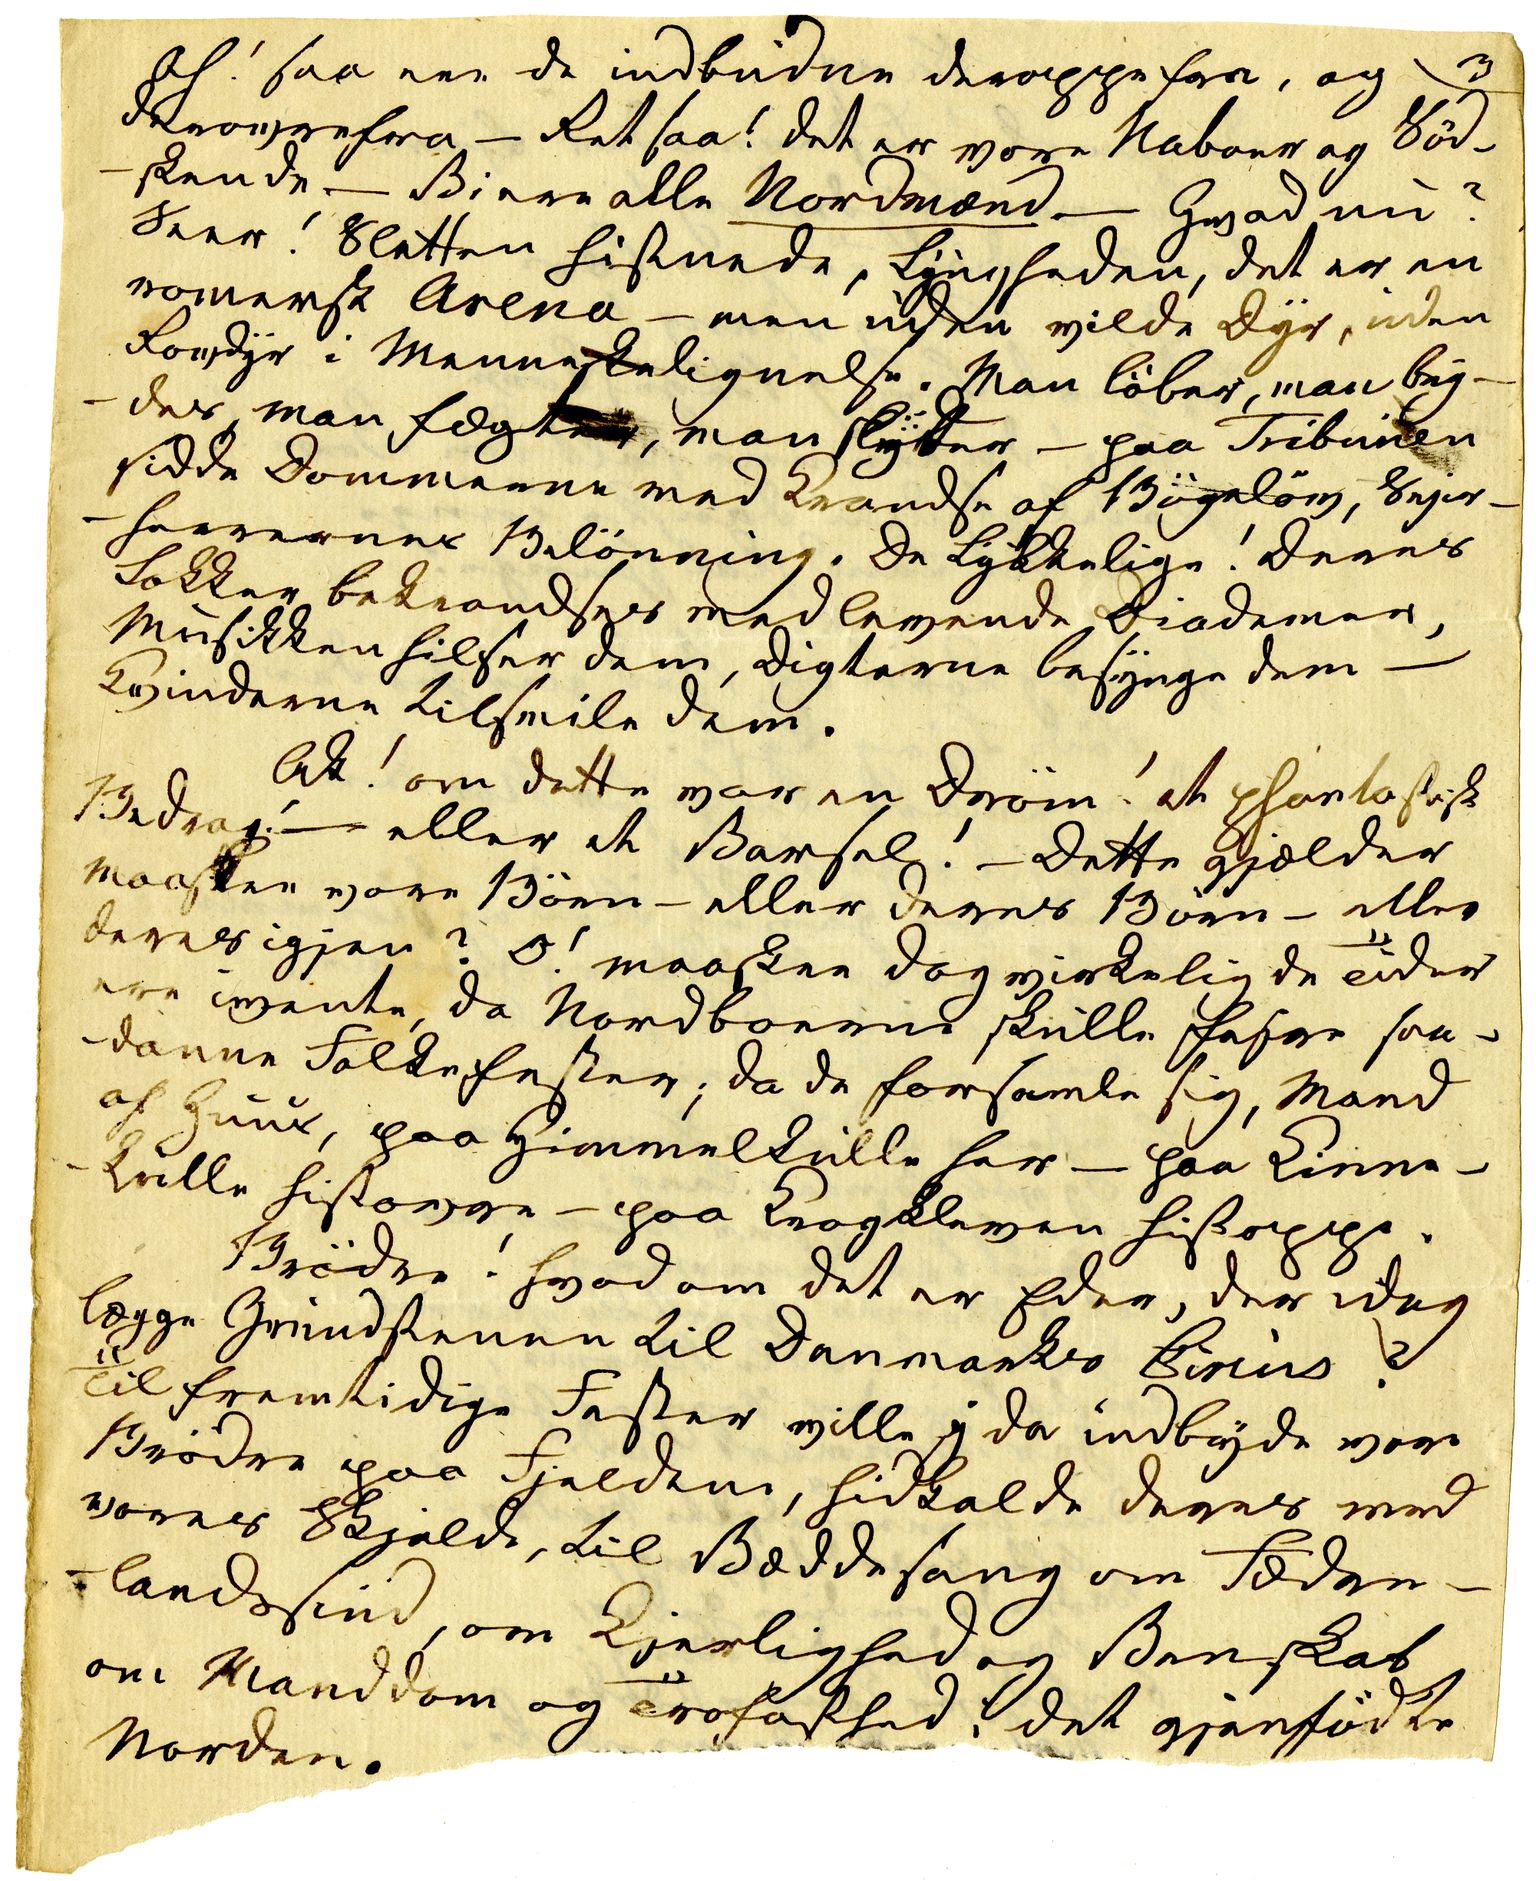 Ah! saa ere de indbudne deroppefra, og 3
derovrefra — Ret saa! det er vore Naboer og Sød-
-skende — Vi ere alle Nordmænd. — Hvad nu?
Seer! Sletten histnede, Lyngheden, det er en
romersk Arena — men uden vilde Dyr, uden
Rovdyr i Menneskelignelse. Man løber, man bry-
-des, man fægter, man skytter — paa Tribunen
sidde Dommerne med Krandse af Bøgeløv, Sejer-
-herrernes Belønning. De Lykkelige! Deres
Lokker bekrandses med levende Diademer,
Musikken hilser dem, Digterne besynge dem —
Qvinderne tilsmile dem.
Ak! om dette var en Drøm! et phantastisk
Bedrag! — eller et Varsel! — Dette gjælder
maaskee vore Børn — eller deres Børn — eller
deres igjen? O! maaskee dog virkelig de Tider
ere ivente, da Nordboerne skulle feire saa-
-danne Folkefester; da de forsamle sig, Mand
af Huus, paa Himmelkulle her — paa Kinne-
-kulle histovre — paa Krogkleven histoppe.
Brødre! hvad om det er Eder, der idag
lægge Grundstenen til Danmarks Circus?
Til fremtidige Fester ville I da indbyde vore
Brødre paa Fjeldene, hidkalde deres med
vores Skjalde, til Væddesang om Fædre-
-landssind, om Kjerlighed og Venskab
om Manddom og Trofasthed i det gjenfødte
Norden.